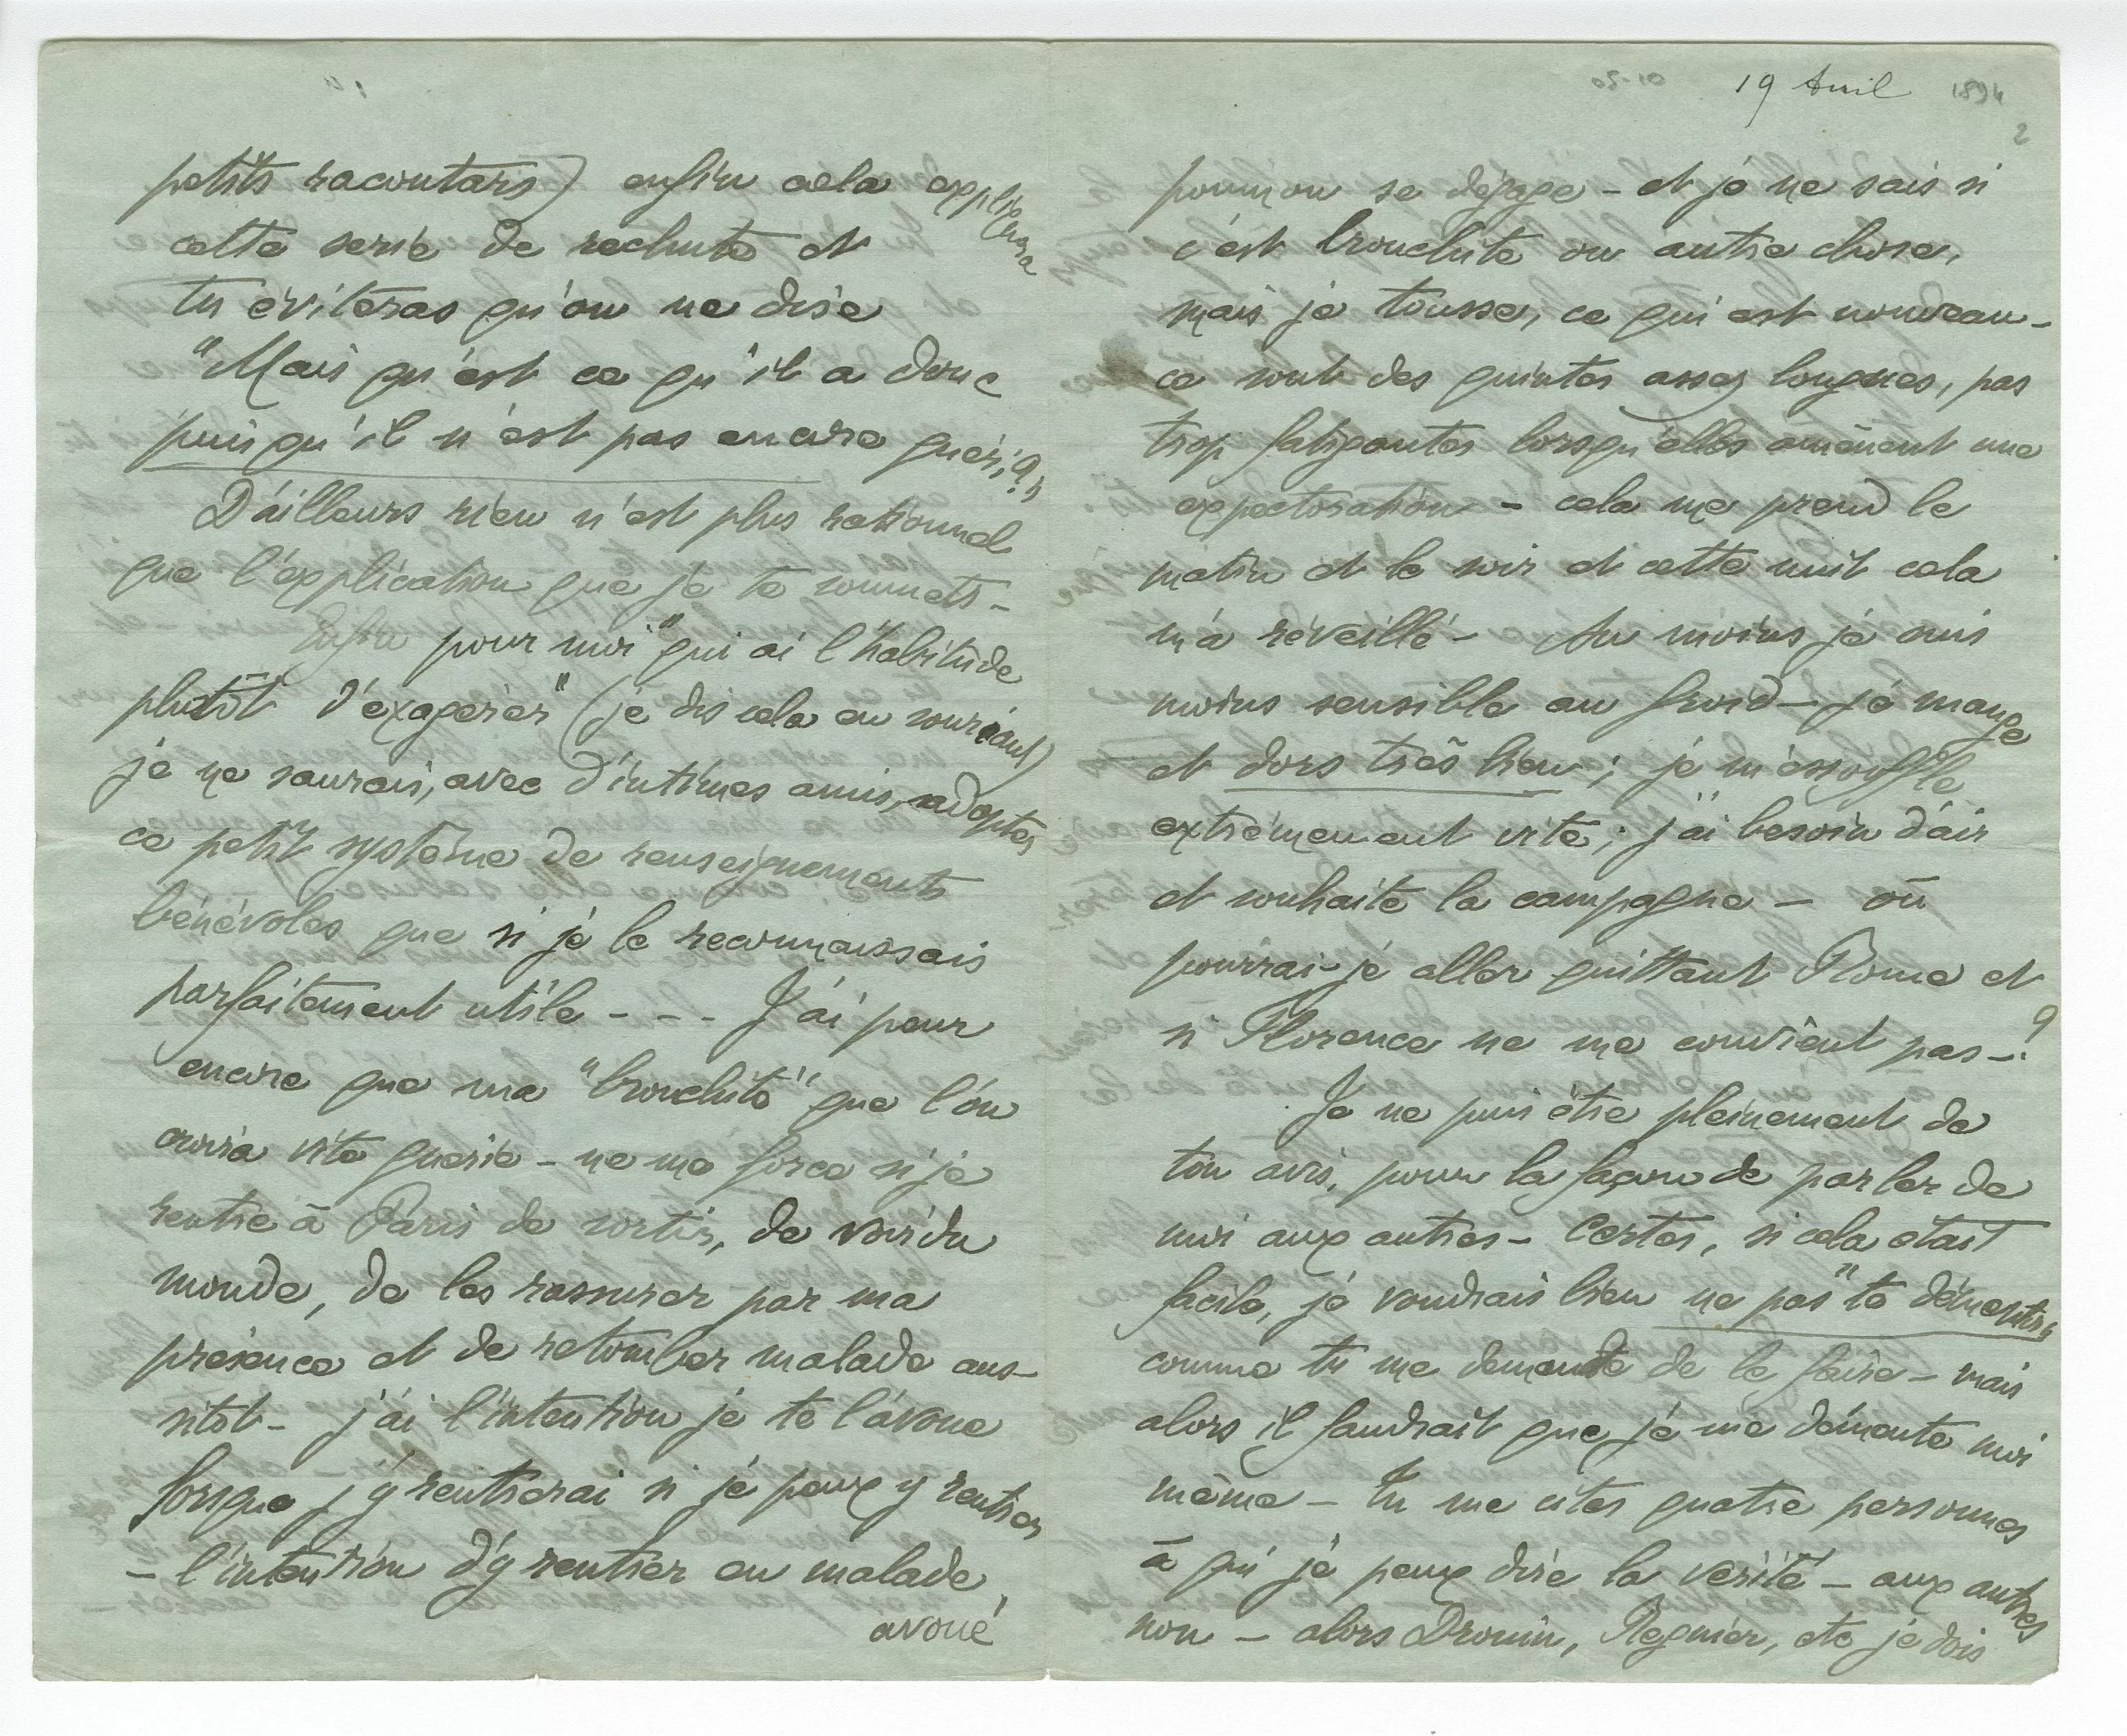 petits racontars) enfin cela expliquera
cette serie de rechute et
tu éviteras qu'on ne dise
"Mais qu'est ce qu'il a donc
puisqu'il n'est pas encore guéri?"
D'ailleurs rien n'est plus rationnel
que l'explication que je te soumets -
Enfin pour moi "qui ai l'habitude
plutôt d'exagérer" (je dis cela en souriant)
je ne saurais, avec d'intimes amis, adopter
ce petit système de renseignements
bénévoles que si je le reconnaissais
parfaitement utile - - - J'ai peur
encore que ma "bronchite" que l'on
croira vite guérie - ne me force si je
rentre à Paris de sortir, de voir du
monde, de les rassurer par ma
présence et de retomber malade aus-
sitôt - j'ai l'intention je te l'avoue
lorsque j'y rentrerai si je peux y rentrer
- l'intention d'y rentrer en malade
avoué
19 Avril 1894
2
poumon se dégage - et je ne sais si
c'est bronchite ou autre chose,
mais je tousse, ce qui est nouveau -
ce sont des quintes assez longues, pas
trop fatigantes lorsqu'elles amènent une
expectoration - cela me prend le
matin et le soir et cette nuit cela
m'a réveillé - Au moins je suis
moins sensible au froid - je mange
et dors très bien ; je m'essouffle
extrêmement vite ; j'ai besoin d'air
et souhaite la campagne - où
pourrai-je aller quittant Rome et
si Florence ne me convient pas - ?
Je ne puis être pleinement de
ton avis, pour la façon de parler de
moi aux autres - Certes, si cela était
facile, je voudrais bien ne pas "te démentir"
comme tu me demande de le faire - mais
alors il faudrait que je me démente moi
même - Tu me cites quatre personnes
à qui je peux dire la vérité - aux autres
non - alors Drouin, Regnier, etc je dois